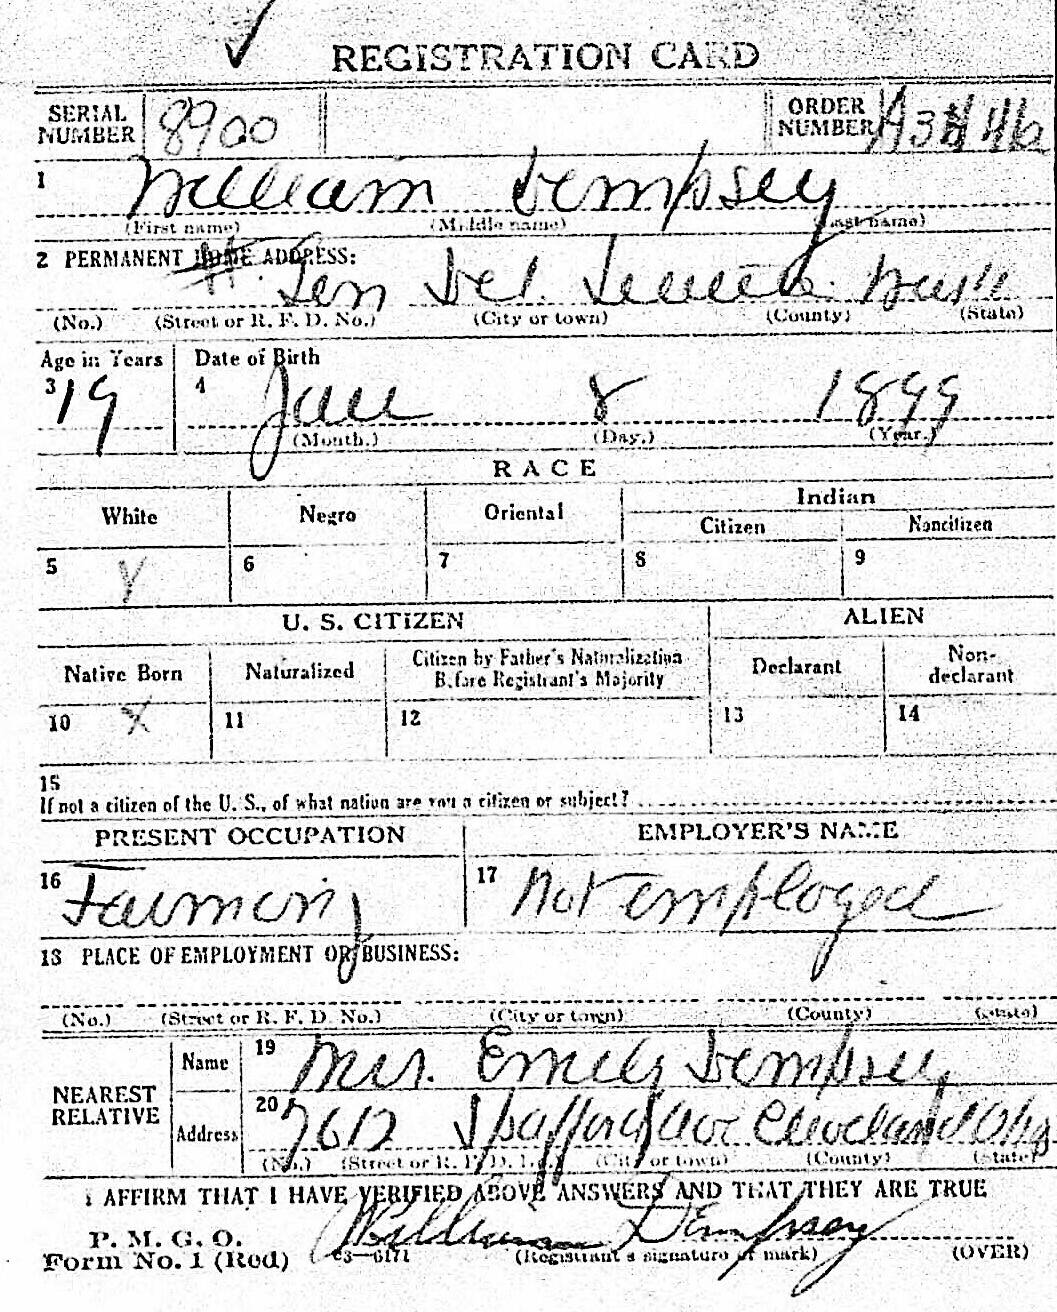 REGISTRATION CARD
SERIAL NUMBER 8900 ORDER NUMBER
1 William Dempsey
(First name) (Middle name) (Last name)
2 PERMANENT HOME ADDRESS:
Gen Del.
(No.) (Street or R. F. D. No.) (City or town) (County) (State)
Age in Years Date of Birth
3 19 4 Jan 8 1899
(Month.) (Day.) (Year.)
RACE
White Negro Oriental Indian
Citizen Noncitizen
5 X 6 7 8 9
U. S. CITIZEN ALIEN
Native Born Naturalized Citizen by Father's Naturalization Before Registrant's Majority Declarant Non-declarant
10 X 11 12 13 14
15
If not a citizen of the U. S., of what nation are you a citizen or subject?
PRESENT OCCUPATION EMPLOYER'S NAME
16 Farming 17 Not employed
18 PLACE OF EMPLOYMENT OR BUSINESS:
(No.) (Street or R. F. D. No.) (City or town) (County) (State)
NEAREST RELATIVE Name 19 Mrs. Emily Dempsey
Address 20 7612 Spafford Ave Cleveland Ohio
(No.) (Street or R. F. D. No.) (City or town) (County) (State)
I AFFIRM THAT I HAVE VERIFIED ABOVE ANSWERS AND THAT THEY ARE TRUE
P. M. G. O.
Form No. 1 (Red) 03—6171 William Dempsey
(Registrant's signature or mark) (OVER)